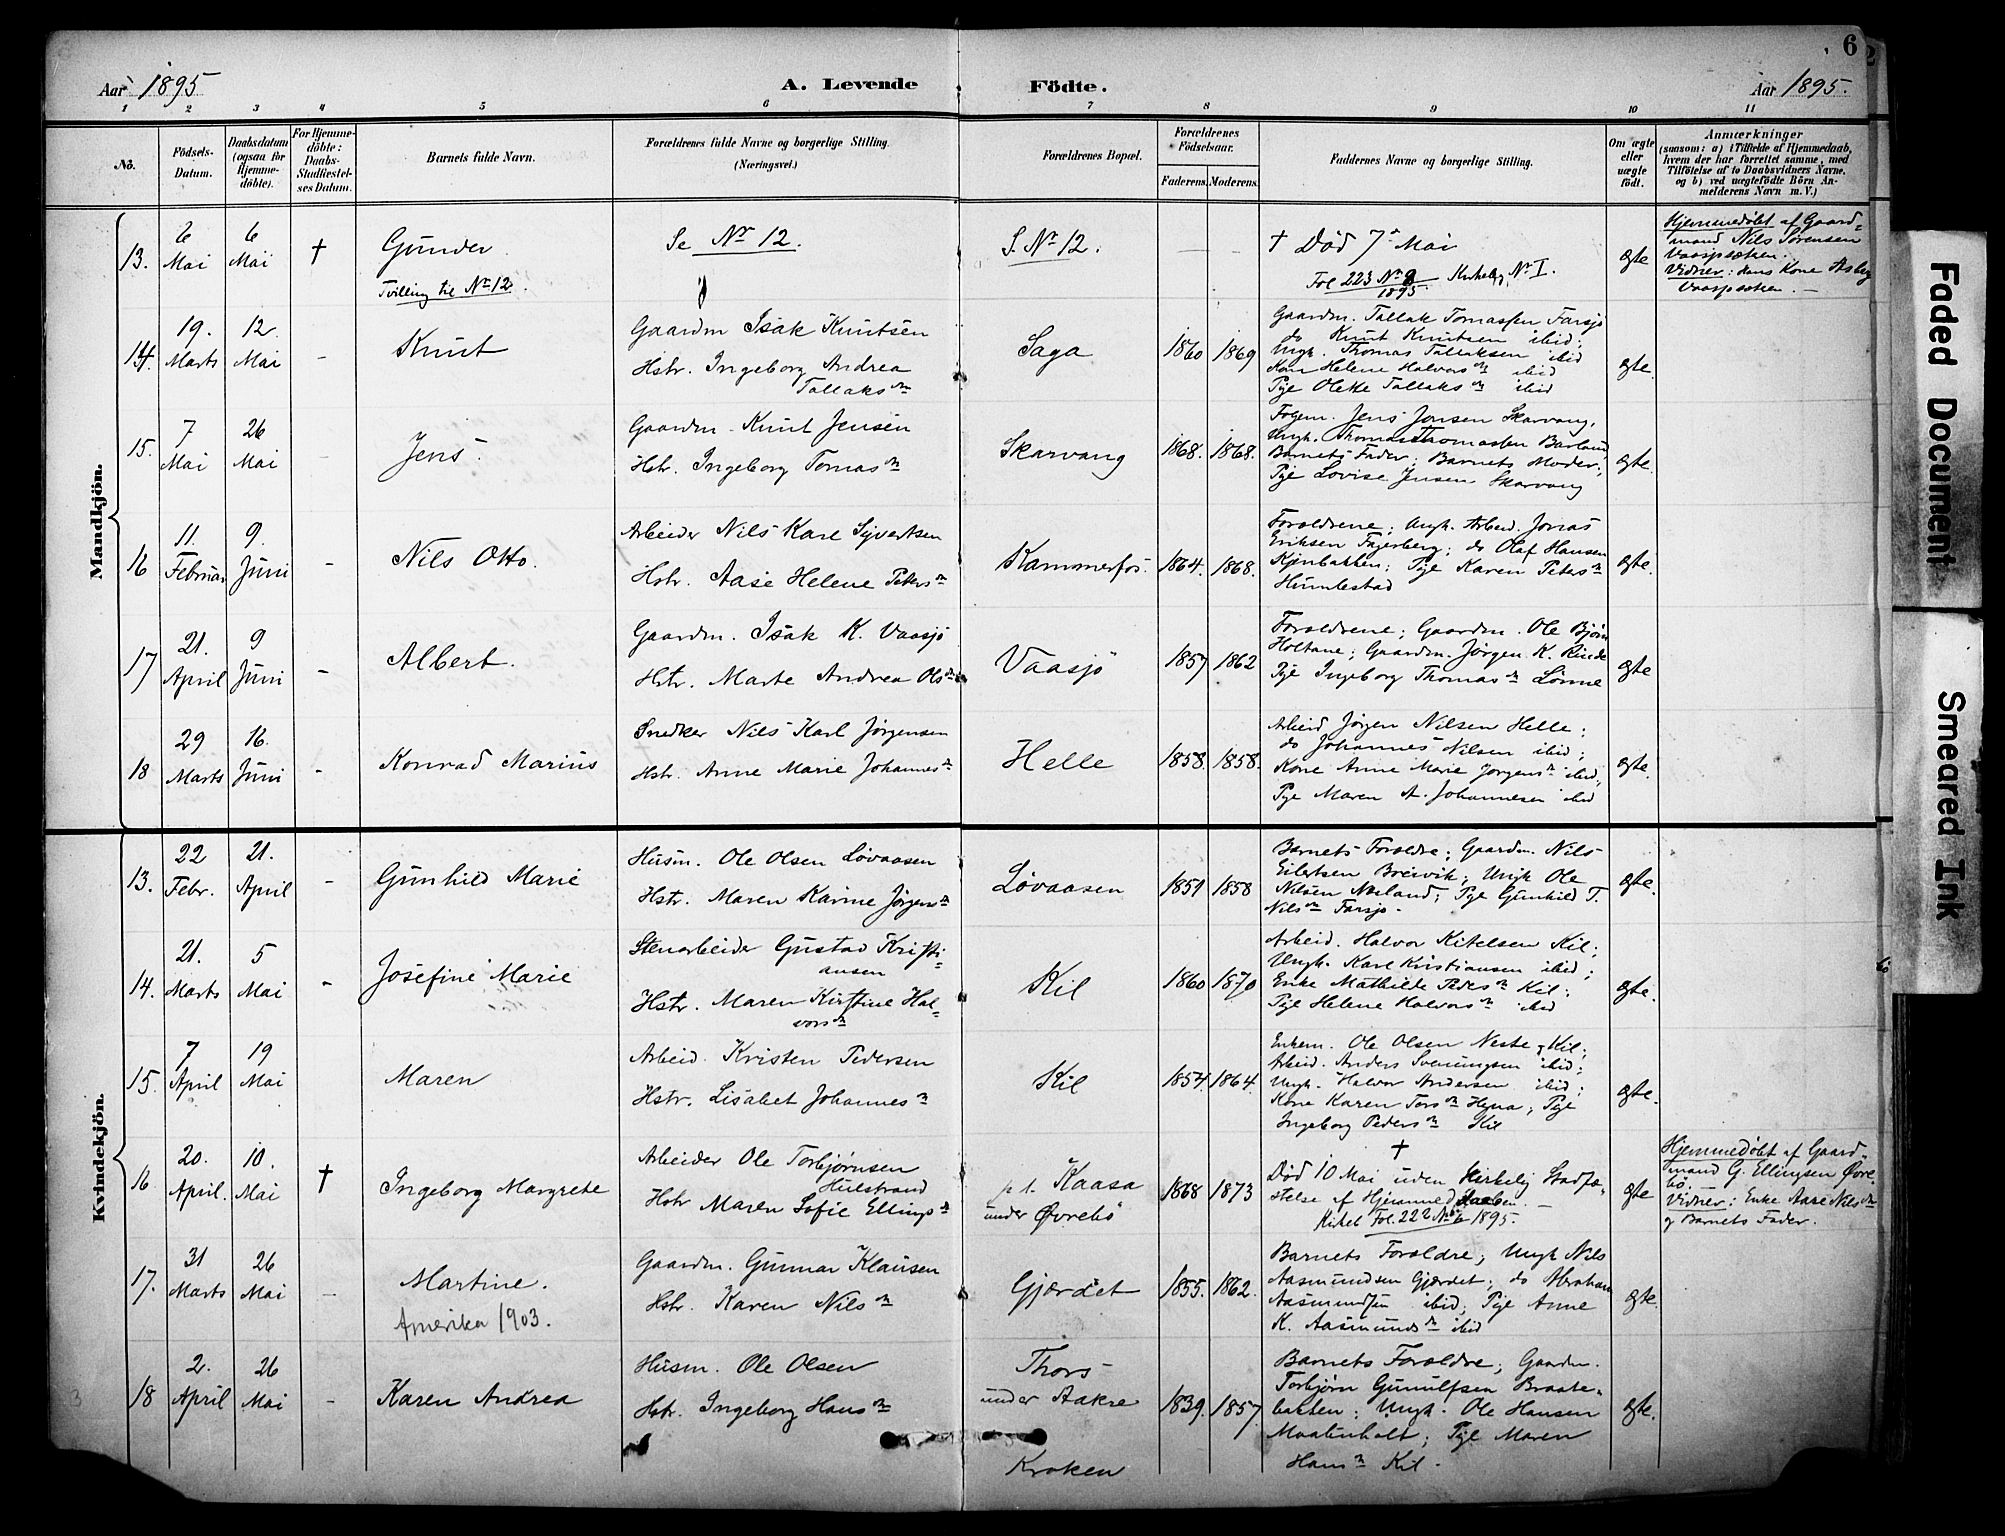 6
Aar 1895
A. Levende
Födte.
Aar 1895.
1 2 3 4 5 6 7 8 9 10 11
No.
Födsels-
Datum.
Daabsdatum
(ogsaa for
Hjemme-
döbte).
For Hjemme-
döbte:
Daabs-
Stadfæstel-
ses Datum.
Barnets fulde Navn.
Forældrenes fulde Navne og borgerlige Stilling.
(Næringsvei.)
Forældrenes Bopæl.
Forældrenes
Födselsaar.
Faderens. Moderens.
Faddernes Navne og borgerlige Stilling.
Om ægte
eller
uægte
födt.
Anmærkninger
(saasom: a) i Tilfælde af Hjemmedaab,
hvem der har forrettet samme, med
Tilföielse af to Daabsvidners Navne,
og b) ved uægtefödte Börn An-
melderens Navn m. V.)
Mandkjön.
13.
6
Mai
6
Mai
†
Gunder
Tvilling til No 12.
Se No 12.
S. No 12.
† Död 7de Mai
Fol 223 No 8
1895.
No I.
ægte
Hjemmedöbt af Gaard-
mand Nils Sörensen
Vidner: hans Kone
14.
19.
Marts
12.
Mai
-
Knut
Gaardm Isak Knutsen
Hstr. Ingeborg Andrea
Tallaksdn
Saga
1860
1869
Gaardm. Tallak Tomassen Farsjö
do Knut Knutsen ibid;
Ungk. Thomas Tallaksen ibid
Kone Helene Halvorsdn ibid
Pige Olette Tallaksdn ibid
ægte.
15.
7
Mai
26
Mai
-
Jens.
Gaardm. Knut Jensen
Hstr. Ingeborg Tomasdn
Skarvang
1868.
1868.
Jens Jensen Skarvang,
Ungk. Thomas Thomassen Barland
Barnets Fader; Barnets Moder;
Pige Lovise Jensen Skarvang
ægte.
16
11.
Februar
9.
Juni
-
Nils Otto.
Arbeider Nils Karl Syvertsen
Hstr. Aase Helene Petersdn
Kammerfos.
1864.
1868.
Foroldrene; Ungk. Arbeid. Jonas
Eriksen Fagerberg; do Olaf Hansen
Kjenbakken; Pige Karen Petersdn
Humlestad
ægte.
17
21.
April
9
Juni
-
Albert.
Gaardm. Isak K. Vaasjö
Hstr. Marte Andrea Olsdn
Vaasjö
1857
1862
Foroldrene; Gaardm. Ole Bjørn
Holtane; Gaardm. Jørgen K. Rinde
Pige Ingeborg Thomasdn Lønne
ægte
18
29
Marts
16.
Juni
-
Konrad Marius
Snedker Nils Karl Jørgensen
Hstr. Anne Marie Johannesdn
Helle
1858.
1858.
Arbeid Jørgen Nilsen Helle;
do Johannes Nilsen ibid;
Kone Anne Marie Jørgensdn ibid;
Pige Maren A. Johannesen ibid
ægte.
Kvindekjön.
13.
22
Febr.
21.
April
-
Gunhild Marie
Husm. Ole Olsen Løvaasen
Hstr. Maren Karine Jørgensdn
Løvaasen
1851
1858
Barnets Foroldre; Gaardm. Nils
Eilertsen Breivik; Ungk Ole
Nilsen; Pige Gunhild T.
Nilsdn Farsjø.
ægte.
14.
21.
Marts
5
Mai
-
Josefine Marie
Stenarbeider Gustav Kristi-
ansen
Hstr. Maren Kirstine Hal-
vorsdn
Kil
1860
1870
Arbeid. Halvor Kitelsen Kil;
Ungk. Karl Kristiansen ibid;
Enke Mathilde Pedersdn Kil;
Pige Helene Halvorsdn ibid
ægte.
15.
7
April
19
Mai
Maren
Arbeid. Kristen Pedersen
Hstr. Lisabet Johannesdn
Kil
1854.
1864.
Enkem. Ole Olsen Neste Kil;
Arbeid. Anders Sveningsen ibid;
Ungk. Halvor Andersen ibid;
Kone Karen Torsdn; Pige
Ingeborg Pedersdn Kil
ægte.
16
20.
April.
10.
Mai
†
Ingeborg Margrete
Arbeider Ole Torbjørnsen
Hulstrand
Hstr Maren Sofie Ellingsdn
p.t. Kaasa
under Øvrebö
1868
1873
†
Død 10 Mai uden kirkelig Stadfæ-
stelse af Hjemmedaaben.
Fol. 222 No 6 1895.
ægte
Hjemmedöbt af Gaard-
mand G. Ellingsen Øvre
bö.
Vidner: Enke Aase Nilsdn
og Barnets Fader.
17.
31
Marts
26
Mai
-
Martine.
Amerika 1903.
Gaardm. Gunnar Klausen
Hstr. Karen Nilsdn
Gjærdet
1855.
1862.
Barnets Foroldre; Ungk Nils
Aasmundsen Gjærdet; do Abraham
Aasmundsen ibid; Pige Anne
K. Aasmundsdn ibid
ægte.
3
18
2.
April
26
Mai
-
Karen Andrea
Husm. Ole Olsen
Hstr. Ingeborg Hansdn
Thors-
under Aakre
Kroken
1839.
1857.
Barnets Foroldre; Gaardm.
Torbjørn Gunulfsen Braate-
bakken; Ungk. Ole Hansen
Maatenholt; Pige Maren
Hansdn Kil.
ægte.
Faded Document
Smeared Ink